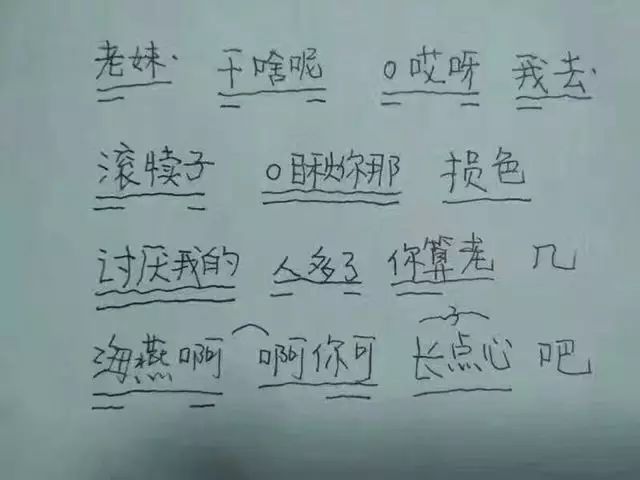 老妹· 干啥呢 0哎呀 我去·
滚犊子 0瞅你那 损色
讨厌我的 人多了 你算老 几
3
海燕啊 啊你可 长点心 吧